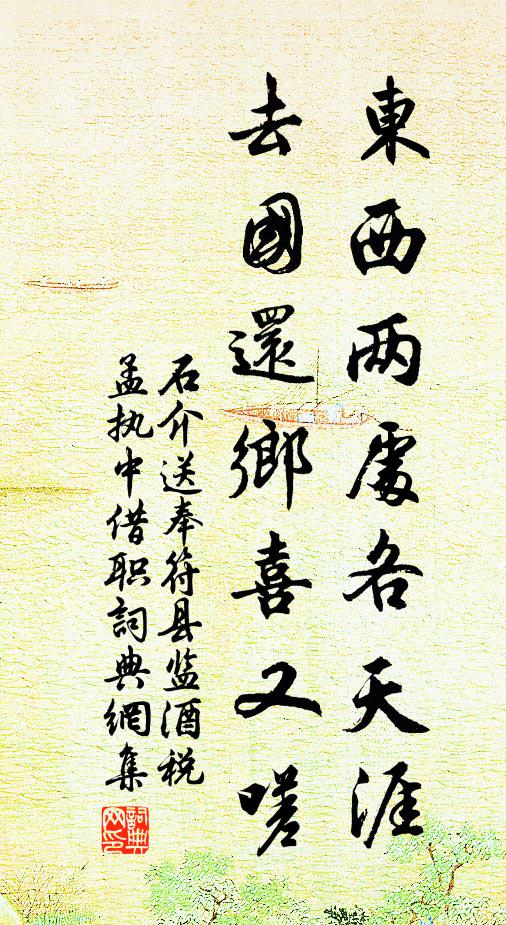 東西两處各天涯
去國還鄉喜又嗟
石介送奉符县监酒税
孟执中借职詞典網集
詞典
网印